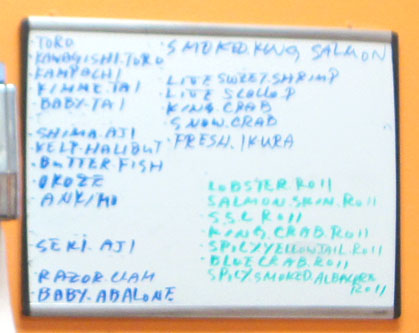 TORO
KAWAGISHI.TORO
KAMPACHI
KIMME.TAI
BABY.TAI
SHIMA.AJI
KELP.HALIBUT
BUTTER.FISH
OKOZE
ANKIMO
SEKI.AJI
RAZOR.CLAM
BABY.ABALONE
SMOKED.KING SALMON
LIVE SWEET.SHRIMP
LIVE SCALLOP
KING.CRAB
SNOW.CRAB
FRESH.IKURA
LOBSTER.Roll
SALMON.SKIN.Roll
S.S.C Roll
KING.CRAB.Roll
SPICY YELLOWTAIL.Roll
BLUE CRAB.Roll
SPICY SMOKED ALBACORE
Roll